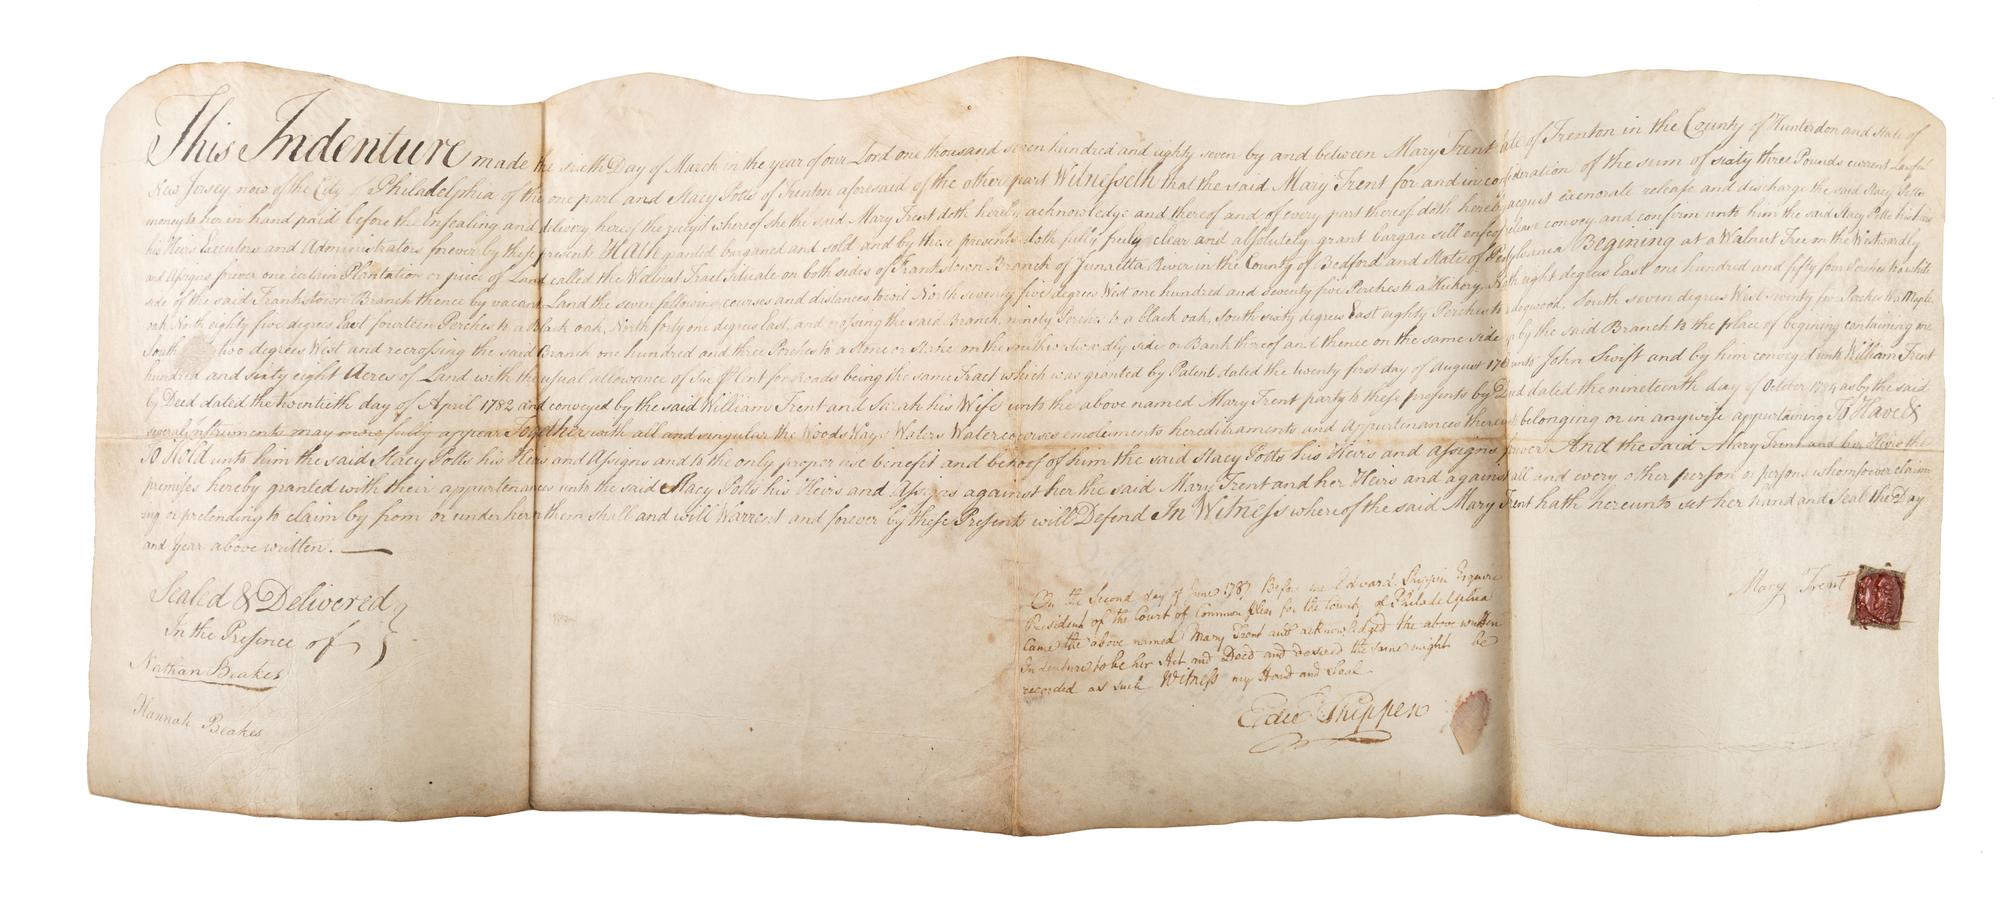 This Indenture made the sixth Day of March in the year of our Lord one thousand seven hundred and eighty seven by and between Mary Trent late of Trenton in the County of Hunterdon and State of
New Jersey now of the City of Philadelphia of the one part and Stacy Potts of Trenton aforesaid of the other part Witnesseth that the said Mary Trent for and in consideration of the sum of sixty three Pounds current lawful
money to her in hand paid before the Ensealing and delivery hereof the receipt whereof she the said Mary Trent doth hereby acknowledge and thereof and of every part thereof doth hereby acquit exonerate release and discharge the said Stacy Potts
his Heirs Executors and Administrators forever by these presents Hath granted barganed and sold and by these presents doth fully freely clear and absolutely grant bargan sell convey and confirm unto him the said Stacy Potts his heirs
and Assigns forever one certain Plantation or piece of Land called the Walnut Tract situate on both sides of Frankstown Branch of Juniatta River in the County of Bedford and State of Begining at a Walnut Tree on the Westwardly
side of the said Frankstown Branch thence by vacant Land the seven following courses and distances to wit North seventy five degrees West one hundred and seventy five Perches to a Hickory, North eight degrees East one hundred and fifty four Perches to a white
oak, North eighty five degrees East fourteen Perches to a Black oak, North forty one degrees East, and crossing the said Branch, ninety Perches to a black oak, South sixty degrees East eighty Perches to South seven degrees West seventy five Perches to a Maple,
South two degrees West and recrossing the said Branch one hundred and three Perches to a Stone or Stake on the side or Bank thereof and thence on the same side by the said Branch to the place of begining containing one
hundred and sixty eight Acres of Land with the usual allowance of Six Cent for Roads being the same Tract which was granted by Patent dated the twenty first day of August unto John Swift and by him conveyed unto William Trent
by Deed dated the twentieth day of April 1782 and conveyed by the said William Trent and Sarah his Wife unto the above named Mary Trent party to these presents by Deed dated the nineteenth day of October 1784 as by the said
several instruments may more fully appear Together with all and singular the Woods Ways Waters Watercourses emolements hereditaments and Appurtinances thereunto belonging or in anywise appurtaining To Have &
To Hold unto him the said Stacy Potts his Heirs and Assigns and to the only proper use benefit and behoof of him the said Stacy Potts his Heirs and Assigns forever And the said Mary Trent and her Heirs the
premises hereby granted with their appurtenances unto the said Stacy Potts his Heirs and Assigns against her the said Mary Trent and her Heirs and against all and every other person or persons whomsoever claim
ing or pretending to claim by from or under her them shall and will Warrent and forever by these Present will Defend In Witness whereof the said Mary Trent hath hereunto set her hand and Seal the Day
and year above written.
Sealed & Delivered
In the Presence of
Nathan Beakes
Hannah Beakes
On the Second day of June 1787 Before me Edward Shippen Esquire
President of the Court of Common Pleas for the County of Philadelphia
Came the above named Mary Trent and acknowledged the above written
Indenture to be her Act and Deed and desired the same might be
recorded as such Witness my Hand and Seal
Edwd Shippen
Mary Trent